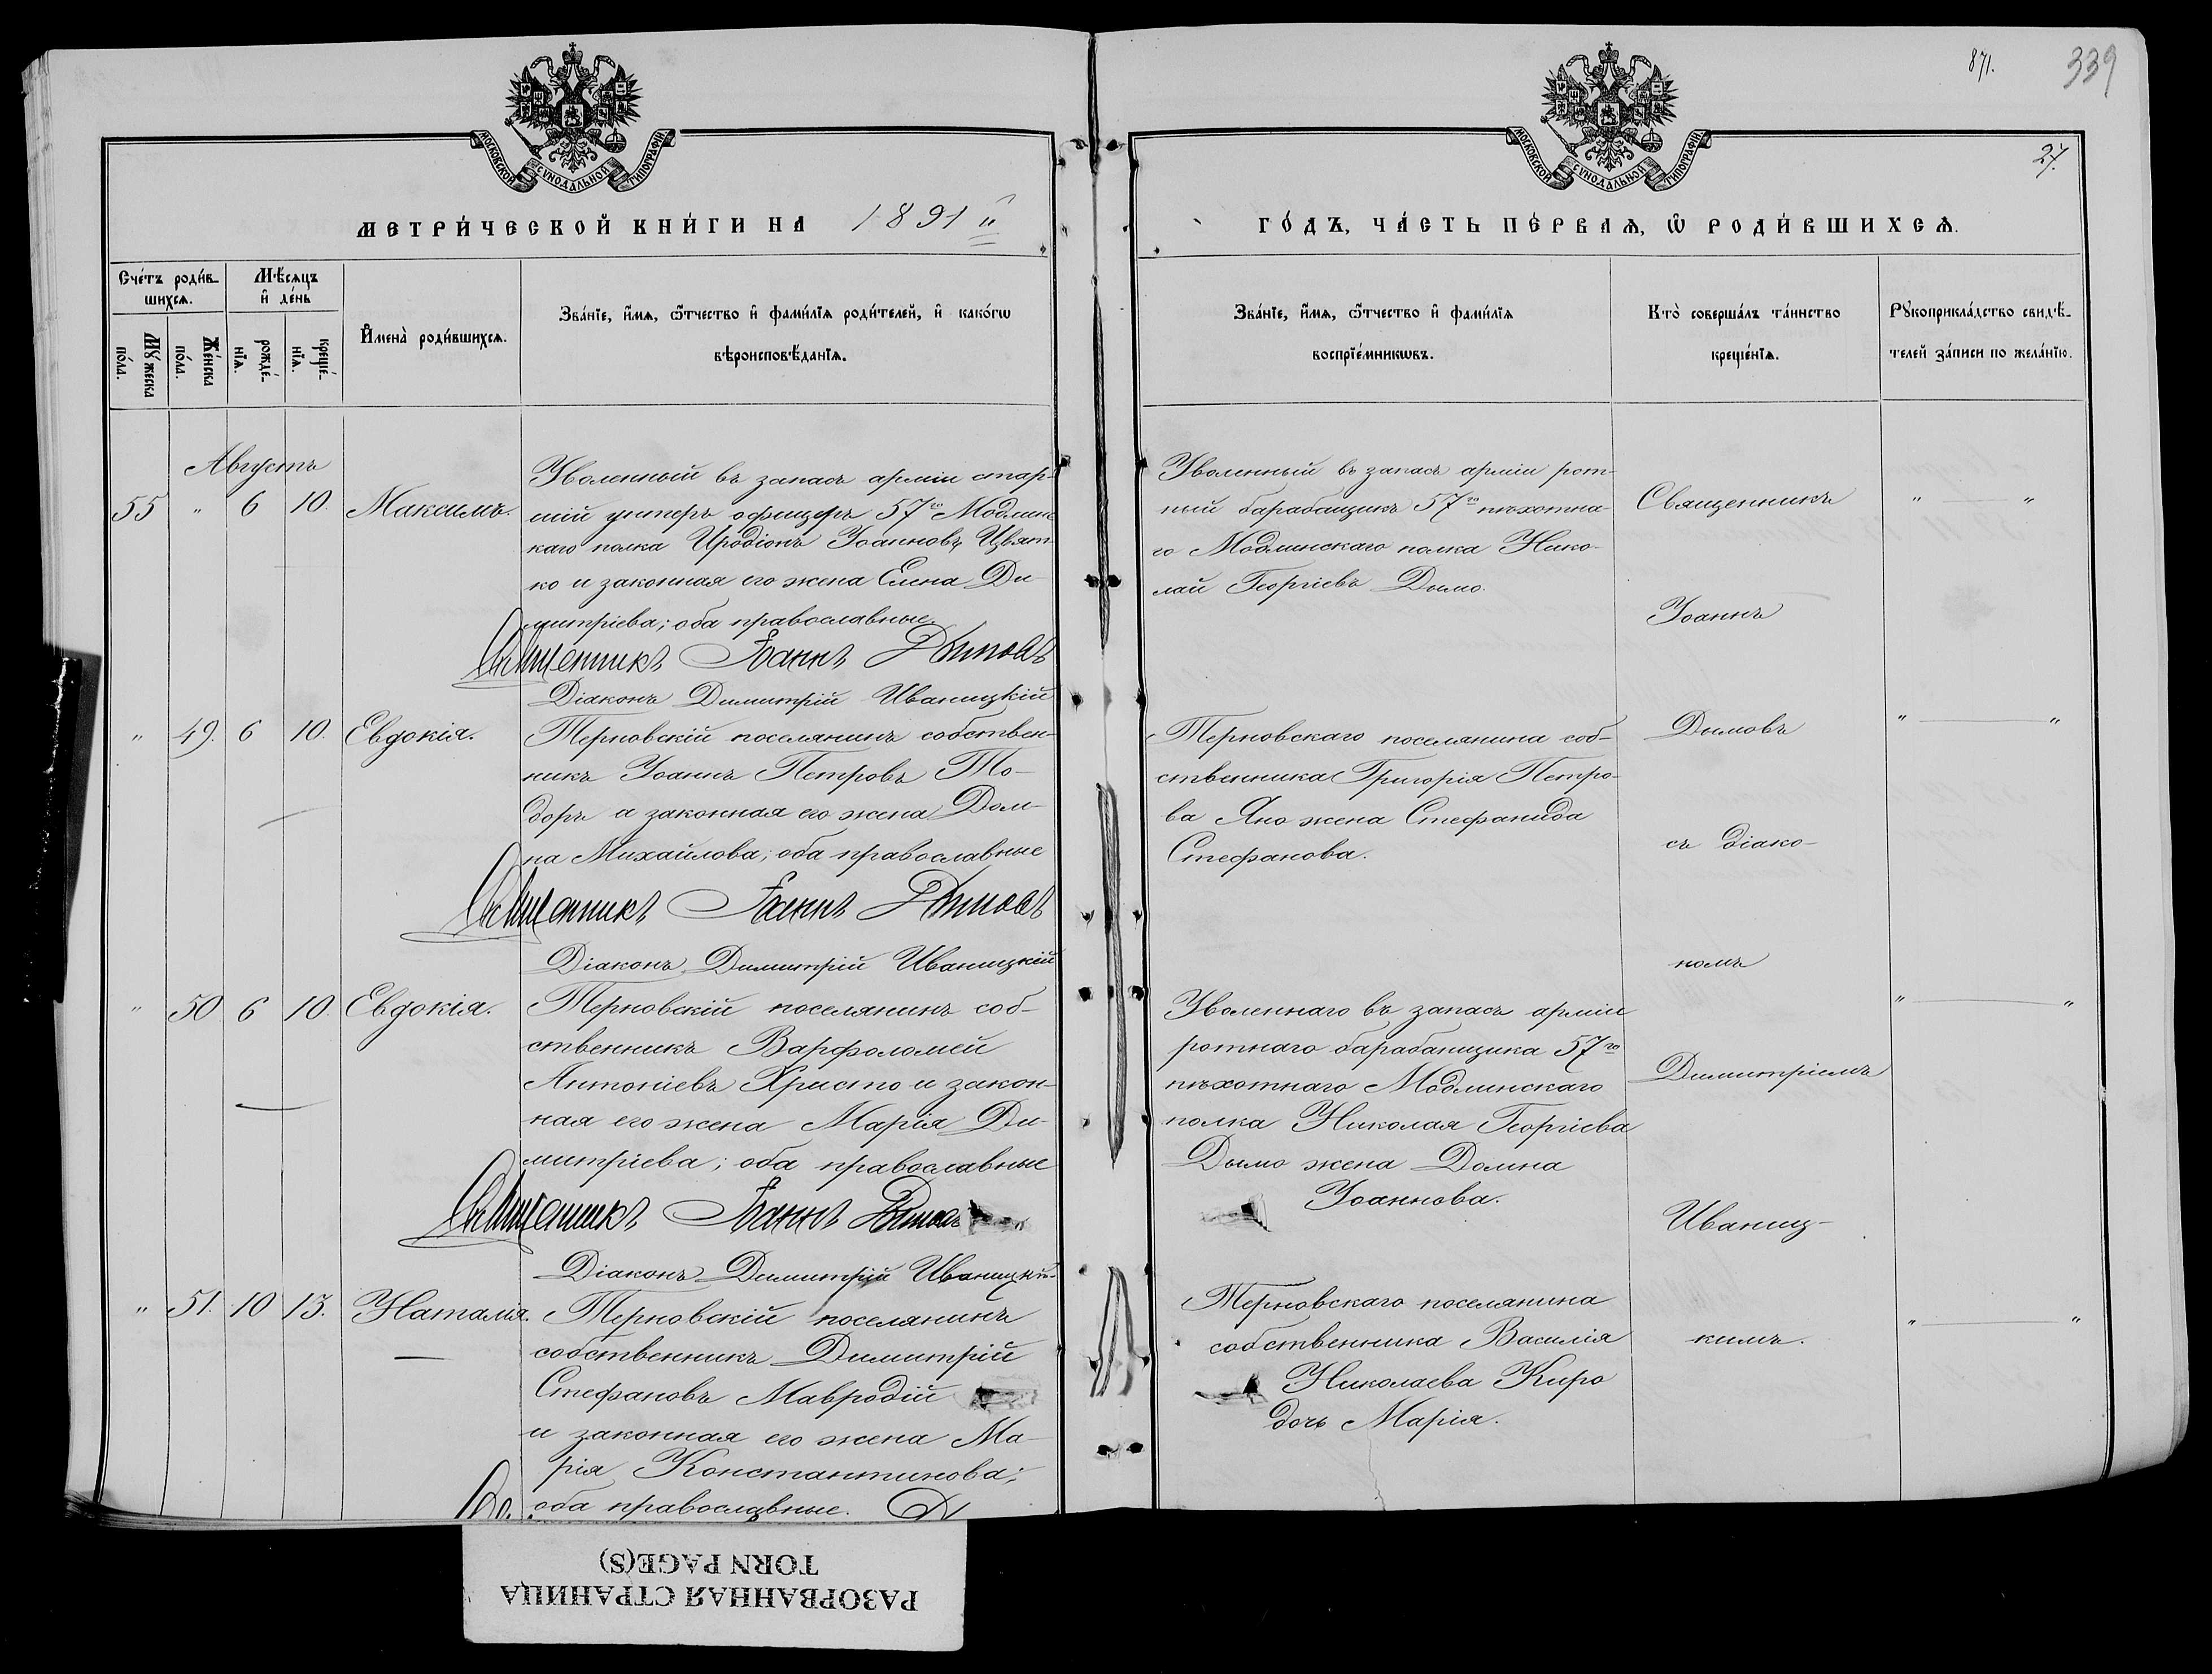 871.
339
27.
МОСКОВСКОЙ СѴНОДАЛЬНОЙ ТИПОГРАФІИ
МОСКОВСКОЙ СѴНОДАЛЬНОЙ ТИПОГРАФІИ
МЕТРИ́ЧЕСКОЙ КНИ́ГИ НА 1891 й
ГО́ДЪ, ЧА́СТЬ ПЕ́РВАѦ, Ѡ РОДИ́ВШИХСѦ.
Сче́тъ роди́в-
шихсѧ.
Мꙋ́жеска
по́ла.
Же́нска
по́ла.
Мѣ́сѧцъ
и҆ де́нь
рожде́-
нїѧ.
креще́-
нїѧ.
И҆мена̀ роди́вшихсѧ.
Зва́нїе, и҆́мѧ, ѻ҆́тчество и҆ фами́лїѧ роди́телей, и҆ како́гѡ
вѣроисповѣ́данїѧ.
Зва́нїе, и҆́мѧ, ѻ҆́тчество и҆ фами́лїѧ
воспрїе́мникѡвъ.
Кто̀ соверша́лъ та́инство
креще́нїѧ.
Рꙋкоприкла́дство свидѣ́-
телей за́писи по жела́нїю.
Августъ
55 " 6 10. Максимъ.
Уволенный въ запасъ арміи стар-
шій унтеръ офицеръ 57го Модлинс
каго полка Иродіонъ Іоанновъ Цвят-
ко и законная его жена Елена Ди-
митріева; оба православные.
Священникъ Іоаннъ Дымовъ
Діаконъ Димитрій Иваницкій
Уволенный въ запасъ арміи рот-
ный барабанщикъ 57го пѣхотна-
го Модлинскаго полка Нико-
лай Георгіевъ Дымо.
Священникъ
Іоаннъ
Дымовъ
съ діако-
номъ
Димитріемъ
Иваниц-
кимъ.
" — "
" 49. 6 10. Евдокія.
Терновскій поселянинъ собствен-
никъ Іоаннъ Петровъ То-
доръ и законная его жена Дом-
на Михайлова; оба православные
Священникъ Іоаннъ Дымовъ
Діаконъ Димитрій Иваницкій
Терновскаго поселянина соб-
ственника Григорія Петро-
ва Яно жена Стефанида
Стефанова.
" — "
" 50 6 10 Евдокія.
Терновскій поселянинъ соб-
ственникъ Варфоломей
Антоніевъ Христо и закон-
ная его жена Марія Ди-
митріева; оба православные
Священникъ Іоаннъ Дымовъ
Діаконъ Димитрій Иваницкій
Уволеннаго въ запасъ арміи
ротнаго барабанщика 57го
пѣхотнаго Модлинскаго
полка Николая Георгіева
Дымо жена Домна
Іоаннова.
" — "
" 51. 10 13. Наталія.
Терновскій поселянинъ
собственникъ Димитрій
Стефановъ Мавродій
и законная его жена Ма-
рія Константинова;
оба православные.
Терновскаго поселянина
собственника Василія
Николаева Киро
дочь Марія.
" — "
РАЗОРВАННАЯ СТРАНИЦА
TORN PAGE(S)